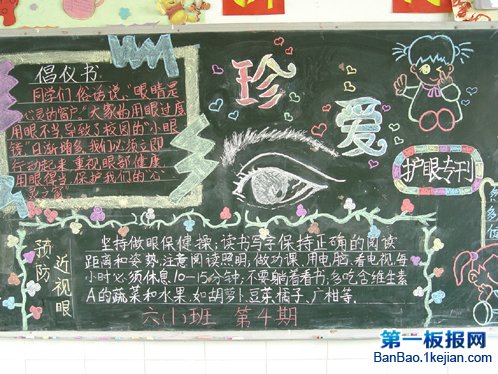 倡仪书
同学们俗话说，“眼睛是
心灵的窗户”大家的用眼过度
用眼不当导致了校园的“小眼
镜”日渐增多，我们必须立即
行动起来重视眼部健康
用眼得当，保护我们的“心
灵之窗”
珍
爱
护眼专刊
预防
近视眼
坚持做眼保健操；读书写字保持正确的阅读
距离和姿势，注意阅读照明，做功课、用电脑、看电视，每
小时必须休息10-15分钟，不要躺着看书；多吃含维生素
A的蔬菜和水果，如胡萝卜、豆芽、橘子、广柑等。
六(1)班 第4期
第一板报网
BanBao.1kejian.com